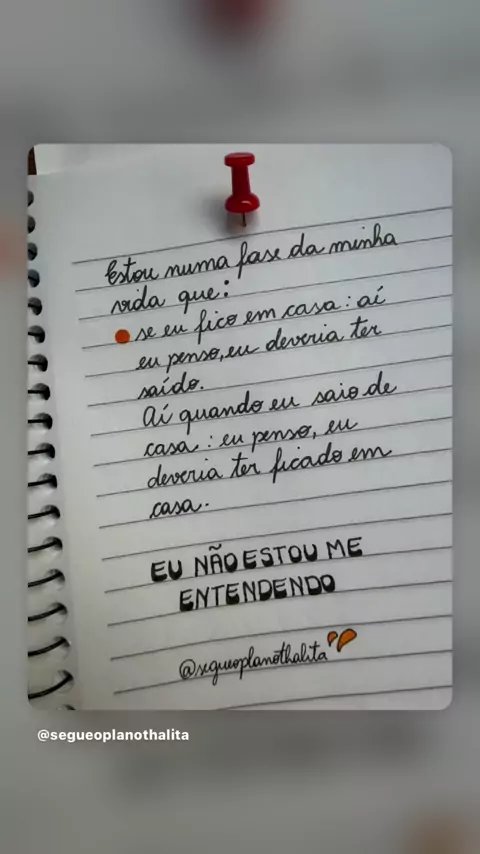 Estou numa fase da minha
vida que:
se eu fico em casa: aí
eu penso, eu deveria ter
saído.
Aí quando eu saio de
casa: eu penso, eu
deveria ter ficado em
casa.
EU NÃO ESTOU ME
ENTENDENDO
@segueoplanothalita
@segueoplanothalita